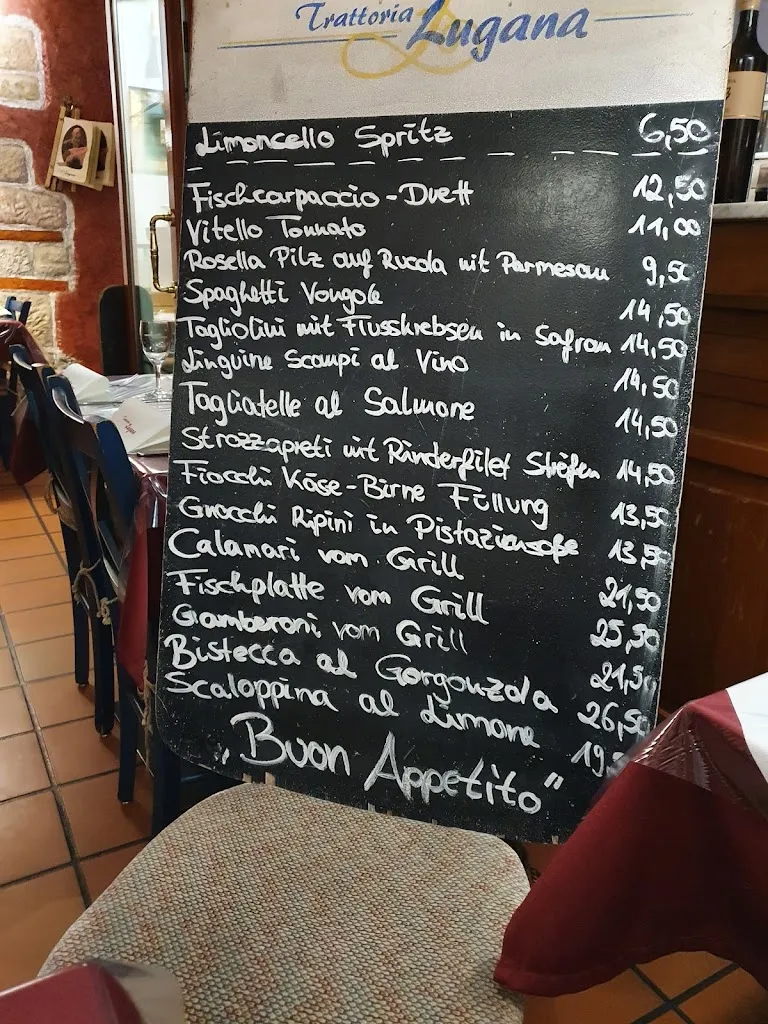 Trattoria Lugana
Limoncello Spritz 6,50
Fischcarpaccio-Duett 12,50
Vitello Tonnato 11,00
Rosella Pilz auf Rucola mit Parmesan 9,50
Spaghetti Vongole 14,50
Tagliolini mit Flusskrebsen in Safran 14,50
Linguine Scampi al Vino 14,50
Tagliatelle al Salmone 14,50
Strozzapreti mit Rinderfilet Streifen 14,50
Fiocchi Käse-Birne Füllung 13,50
Gnocchi Ripini in Pistaziensoße 13,50
Calamari vom Grill 21,50
Fischplatte vom Grill 25,50
Gamberoni vom Grill 21,50
Bistecca al Gorgonzola 26,50
Scaloppina al Limone 19,
„Buon Appetito"